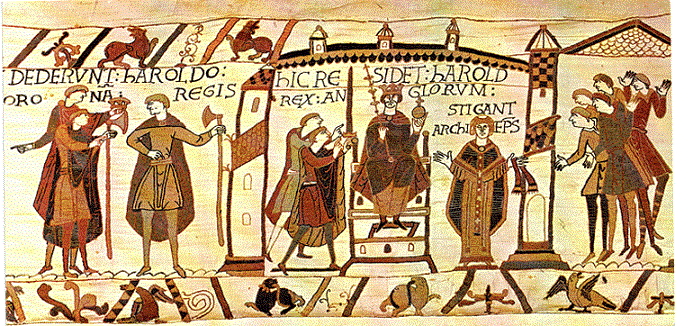 DEDERVNT : hAROLDO :
ORO NA : REGIS
hIC RE SIDET : hAROLD
REX : AN GLORVM :
STIGANT
ARChI EPS